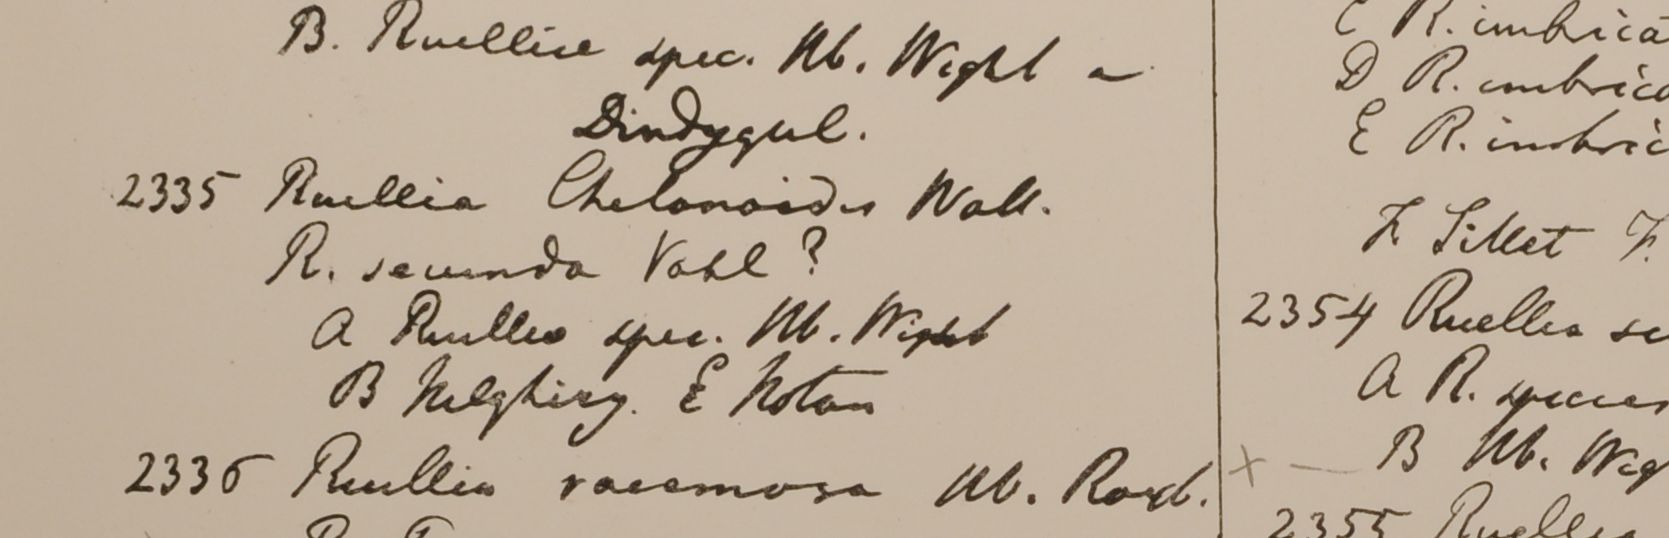 B. Ruelliae spec. Hb. Wight a
Dindygul.
2335 Ruellia Chelonoides Wall.
R. secunda Vahl ?
A Ruellia spec. Hb. Wight
B Nelghiry. E Noton
2336 Ruellia racemosa Hb. Roxb.
C R. imbrica
D R. imbrica
E R. imbric
F. Sillet F.
2354 Ruellia se
A R. species
B Hb. Wig
2355 Ruellia